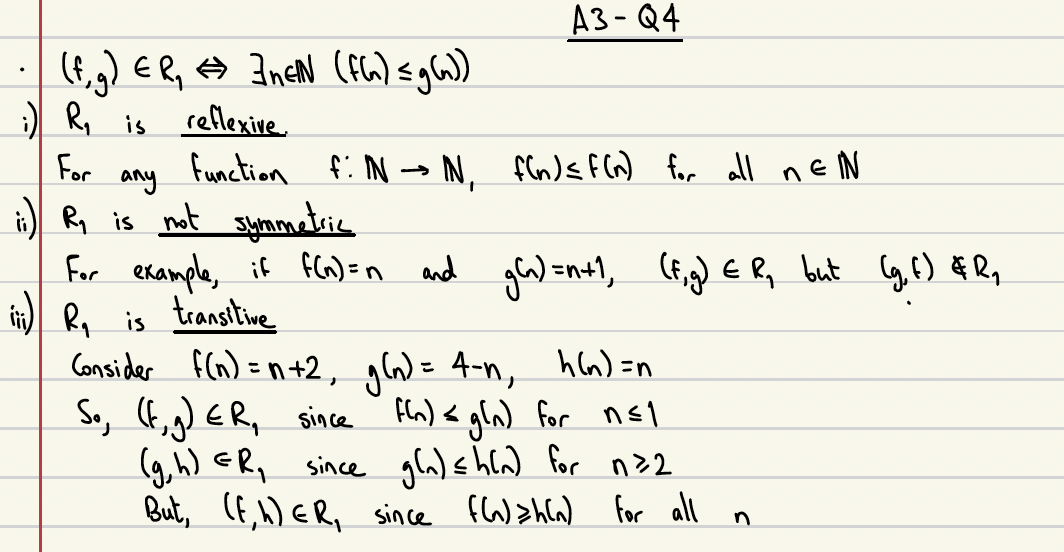 A3 - Q4
· (f,g) ∈ R₁ ⇔ ∃n∈ℕ (f(n) ≤ g(n))
i) R₁ is reflexive.
For any function f: ℕ → ℕ, f(n) ≤ f(n) for all n ∈ ℕ
ii) R₁ is not symmetric
For example, if f(n) = n and g(n) = n+1, (f,g) ∈ R₁ but (g,f) ∉ R₁
iii) R₁ is transitive
Consider f(n) = n+2, g(n) = 4-n, h(n) = n
So, (f,g) ∈ R₁ since f(n) ≤ g(n) for n ≤ 1
(g,h) ∈ R₁ since g(n) ≤ h(n) for n ≥ 2
But, (f,h) ∈ R₁ since f(n) ≥ h(n) for all n